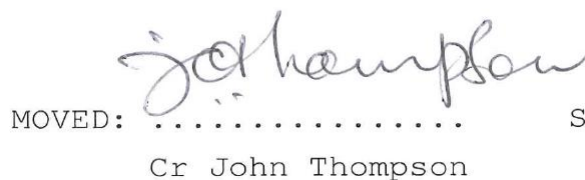 jcthompson
MOVED: .................. S
Cr John Thompson